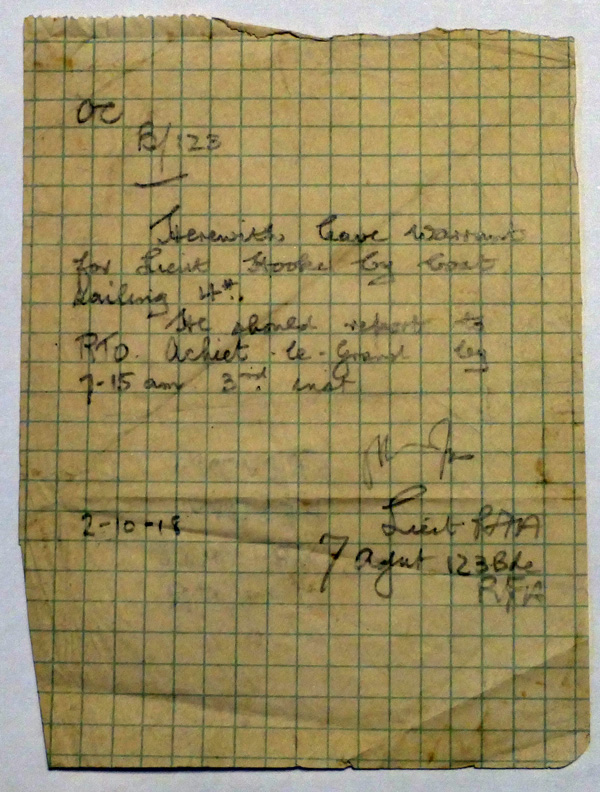 OC
B/123
Herewith leave warrant
for Lieut Hooke by boat
sailing 4th.
He should report to
RTO. Achiet-le-Grand by
7-15 am 3rd. inst
Lieut RFA
2-10-18
Adjut 123 Bde
RFA